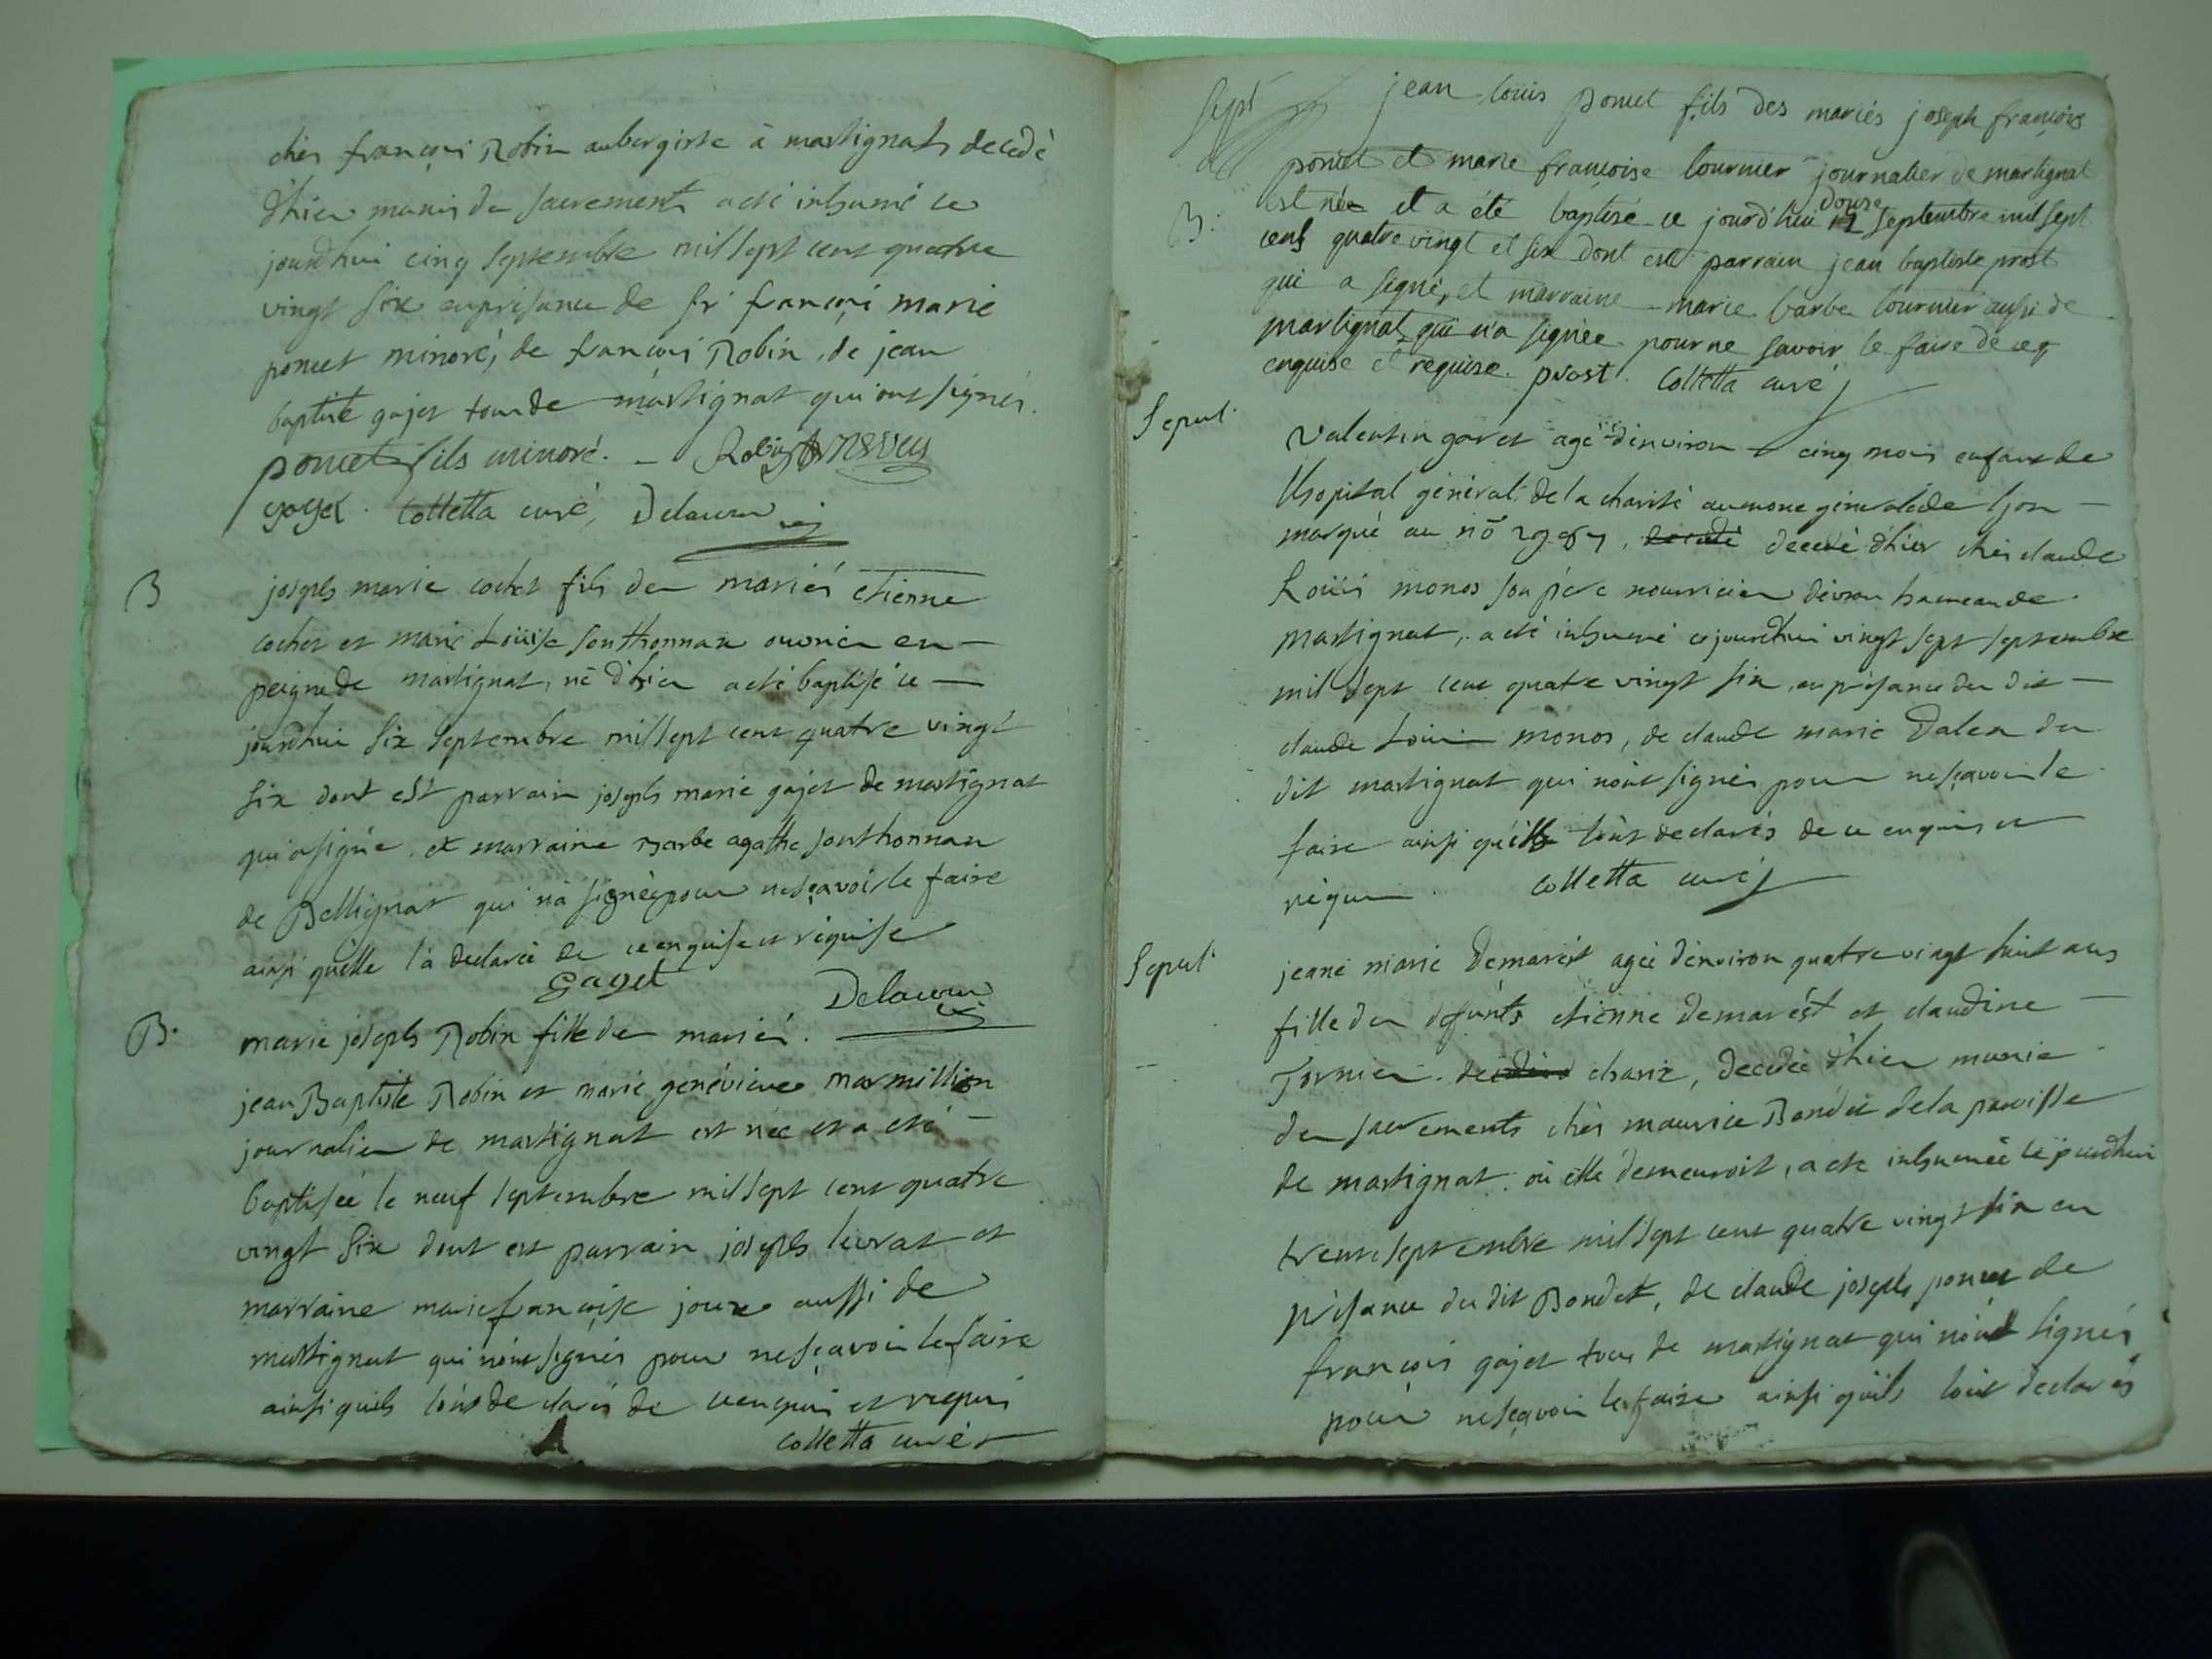 chés françois Robin aubergiste à martignat, decedé
d'hier munis de sacrements a eté inhumé ce
jourdhui cinq septembre mil sept cent quatre
vingt six en présance de sr françoi marie
poncet minoré, de françois Robin, de jean
baptiste gojet tous de martignat qui ont signés.
poncet fils minoré. - Robin
gojet. Colletta curé, Delacour
B
joseph marie cochet fils des mariés etienne
cochet et marie Loüise sonthonnax ouvrier en
peigne de martignat, né d'hier a eté baptisé ce
jourdhui six septembre mil sept cent quatre vingt
six dont est parrain joseph marie gojet de martignat
qui a signé, et marraine Barbe agathe sonthonnax
de Bellignat qui n'a signée pour ne sçavoir le faire
ainsi qu'elle l'a declarée de ce enquise et réquise
Gaget Delacour
B.
marie joseph Robin fille des mariés.
jean Baptiste Robin et marie genéviéve marmillion
journalier de martignat est née et a eté
baptisée le neuf septembre mil sept cent quatre
vingt six dont est parrain joseph levrat et
marraine marie françoise joux aussi de
martignat qui n'ont signés pour ne sçavoir le faire
ainsi quils l'ont declarés de ce enquis et requis
colletta curé
Sept
jean loüis poncet fils des mariés joseph françois
poncet et marie françoise tournier journalier de martignat
B.
est née et a été baptisé ce jourd'hui 12 douse septembre mil sept
cent quatre vingt et six dont est parrain jean baptiste prost
qui a signé, et marraine marie barbe tournier aussi de
martignat qui n'a signée pour ne savoir le faire de ce
enquise et requise. prost. Colletta curé
Sepul.
Valentin goret agé d'environ cinq mois enfant de
l'hopital général de la charité aumone généralé de lyon
marqué au nõ, decedé decedé d'hier chés claude
Loüis monos son pére nourricier d'évron hameau de
martignat, a eté inhumé ce jourdhui vingt sept septembre
mil sept cent quatre vingt six, en présance du dit
claude Louis monos, de claude marie Dalex du
dit martignat qui n'ont signés pour ne sçavoir le
faire ainsi qu'ils l'ont declarés de ce enquis et
réquis. colletta curé
Sepul.
jeane marie Demarést agée d'environ quatre vingt huit ans
fille des defunts etienne Demarést et claudine
Tornier. charix, decedée d'hier munie
des sacrements chés maurice Bondet de la paroisse
de martignat où elle demeuroit, a eté inhumée ce jourdhui
trente septembre mil sept cent quatre vingt six en
présance du dit Bondet, de claude joseph poncet de
françois gojet tous de martignat qui n'ont signés
pour ne sçavoir le faire ainsi qu'ils l'ont declarés